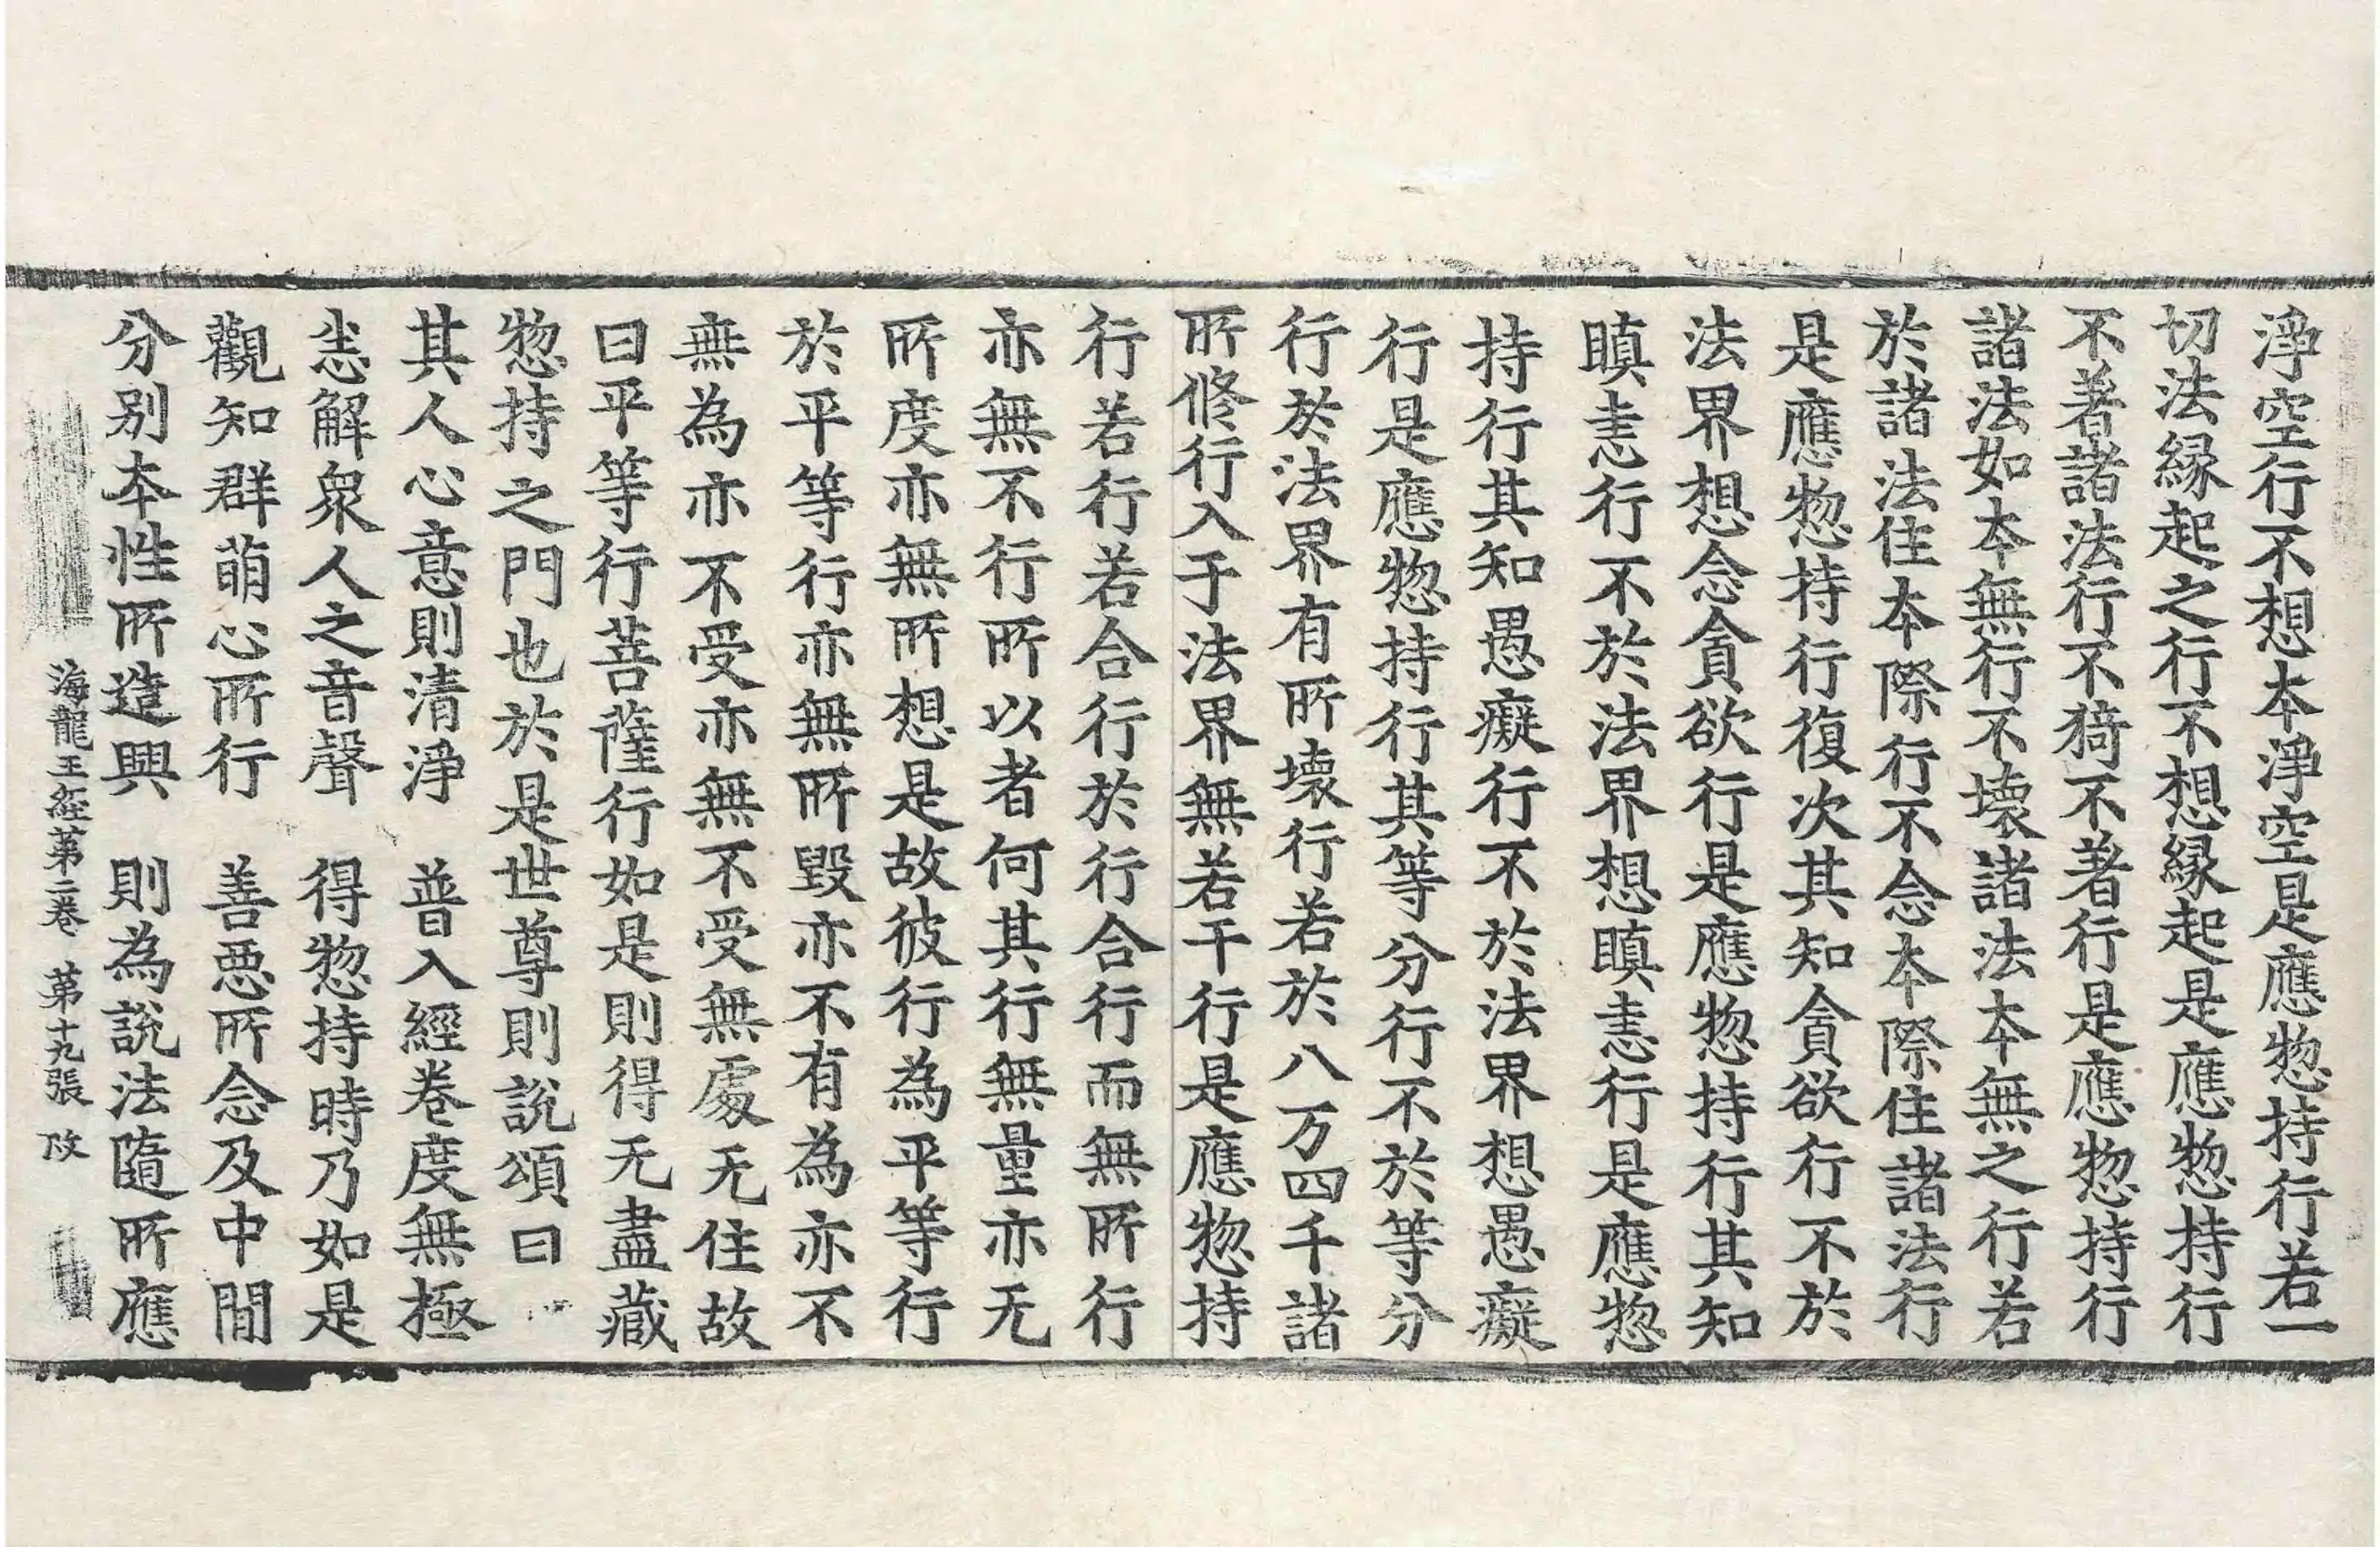 淨空行不想本淨空是應惣持行若一
切法縁起之行不想縁起是應惣持行
不著諸法行不猗不著行是應惣持行
諸法如本無行不壞諸法本無之行若
於諸法住本際行不念本際住諸法行
是應惣持行復次其知貪欲行不於
法界想念貪欲行是應惣持行其知
瞋恚行不於法界想瞋恚行是應惣
持行其知愚癡行不於法界想愚癡
行是應惣持行其等分行不於等分
行於法界有所壞行若於八万四千諸
所修行入于法界無若干行是應惣持
行若行若合行於行合行而無所行
亦無不行所以者何其行無量亦无
所度亦無所想是故彼行為平等行
於平等行亦無所毀亦不有為亦不
無為亦不受亦無不受無處无住故
曰平等行菩薩行如是則得无盡藏
惣持之門也於是世尊則說頌曰
其人心意則清淨　普入經卷度無極
悉解衆人之音聲　得惣持時乃如是
觀知群萌心所行　善悪所念及中間
分別本性所造興　則為說法隨所應
海龍王経第二巻　第十九張　改